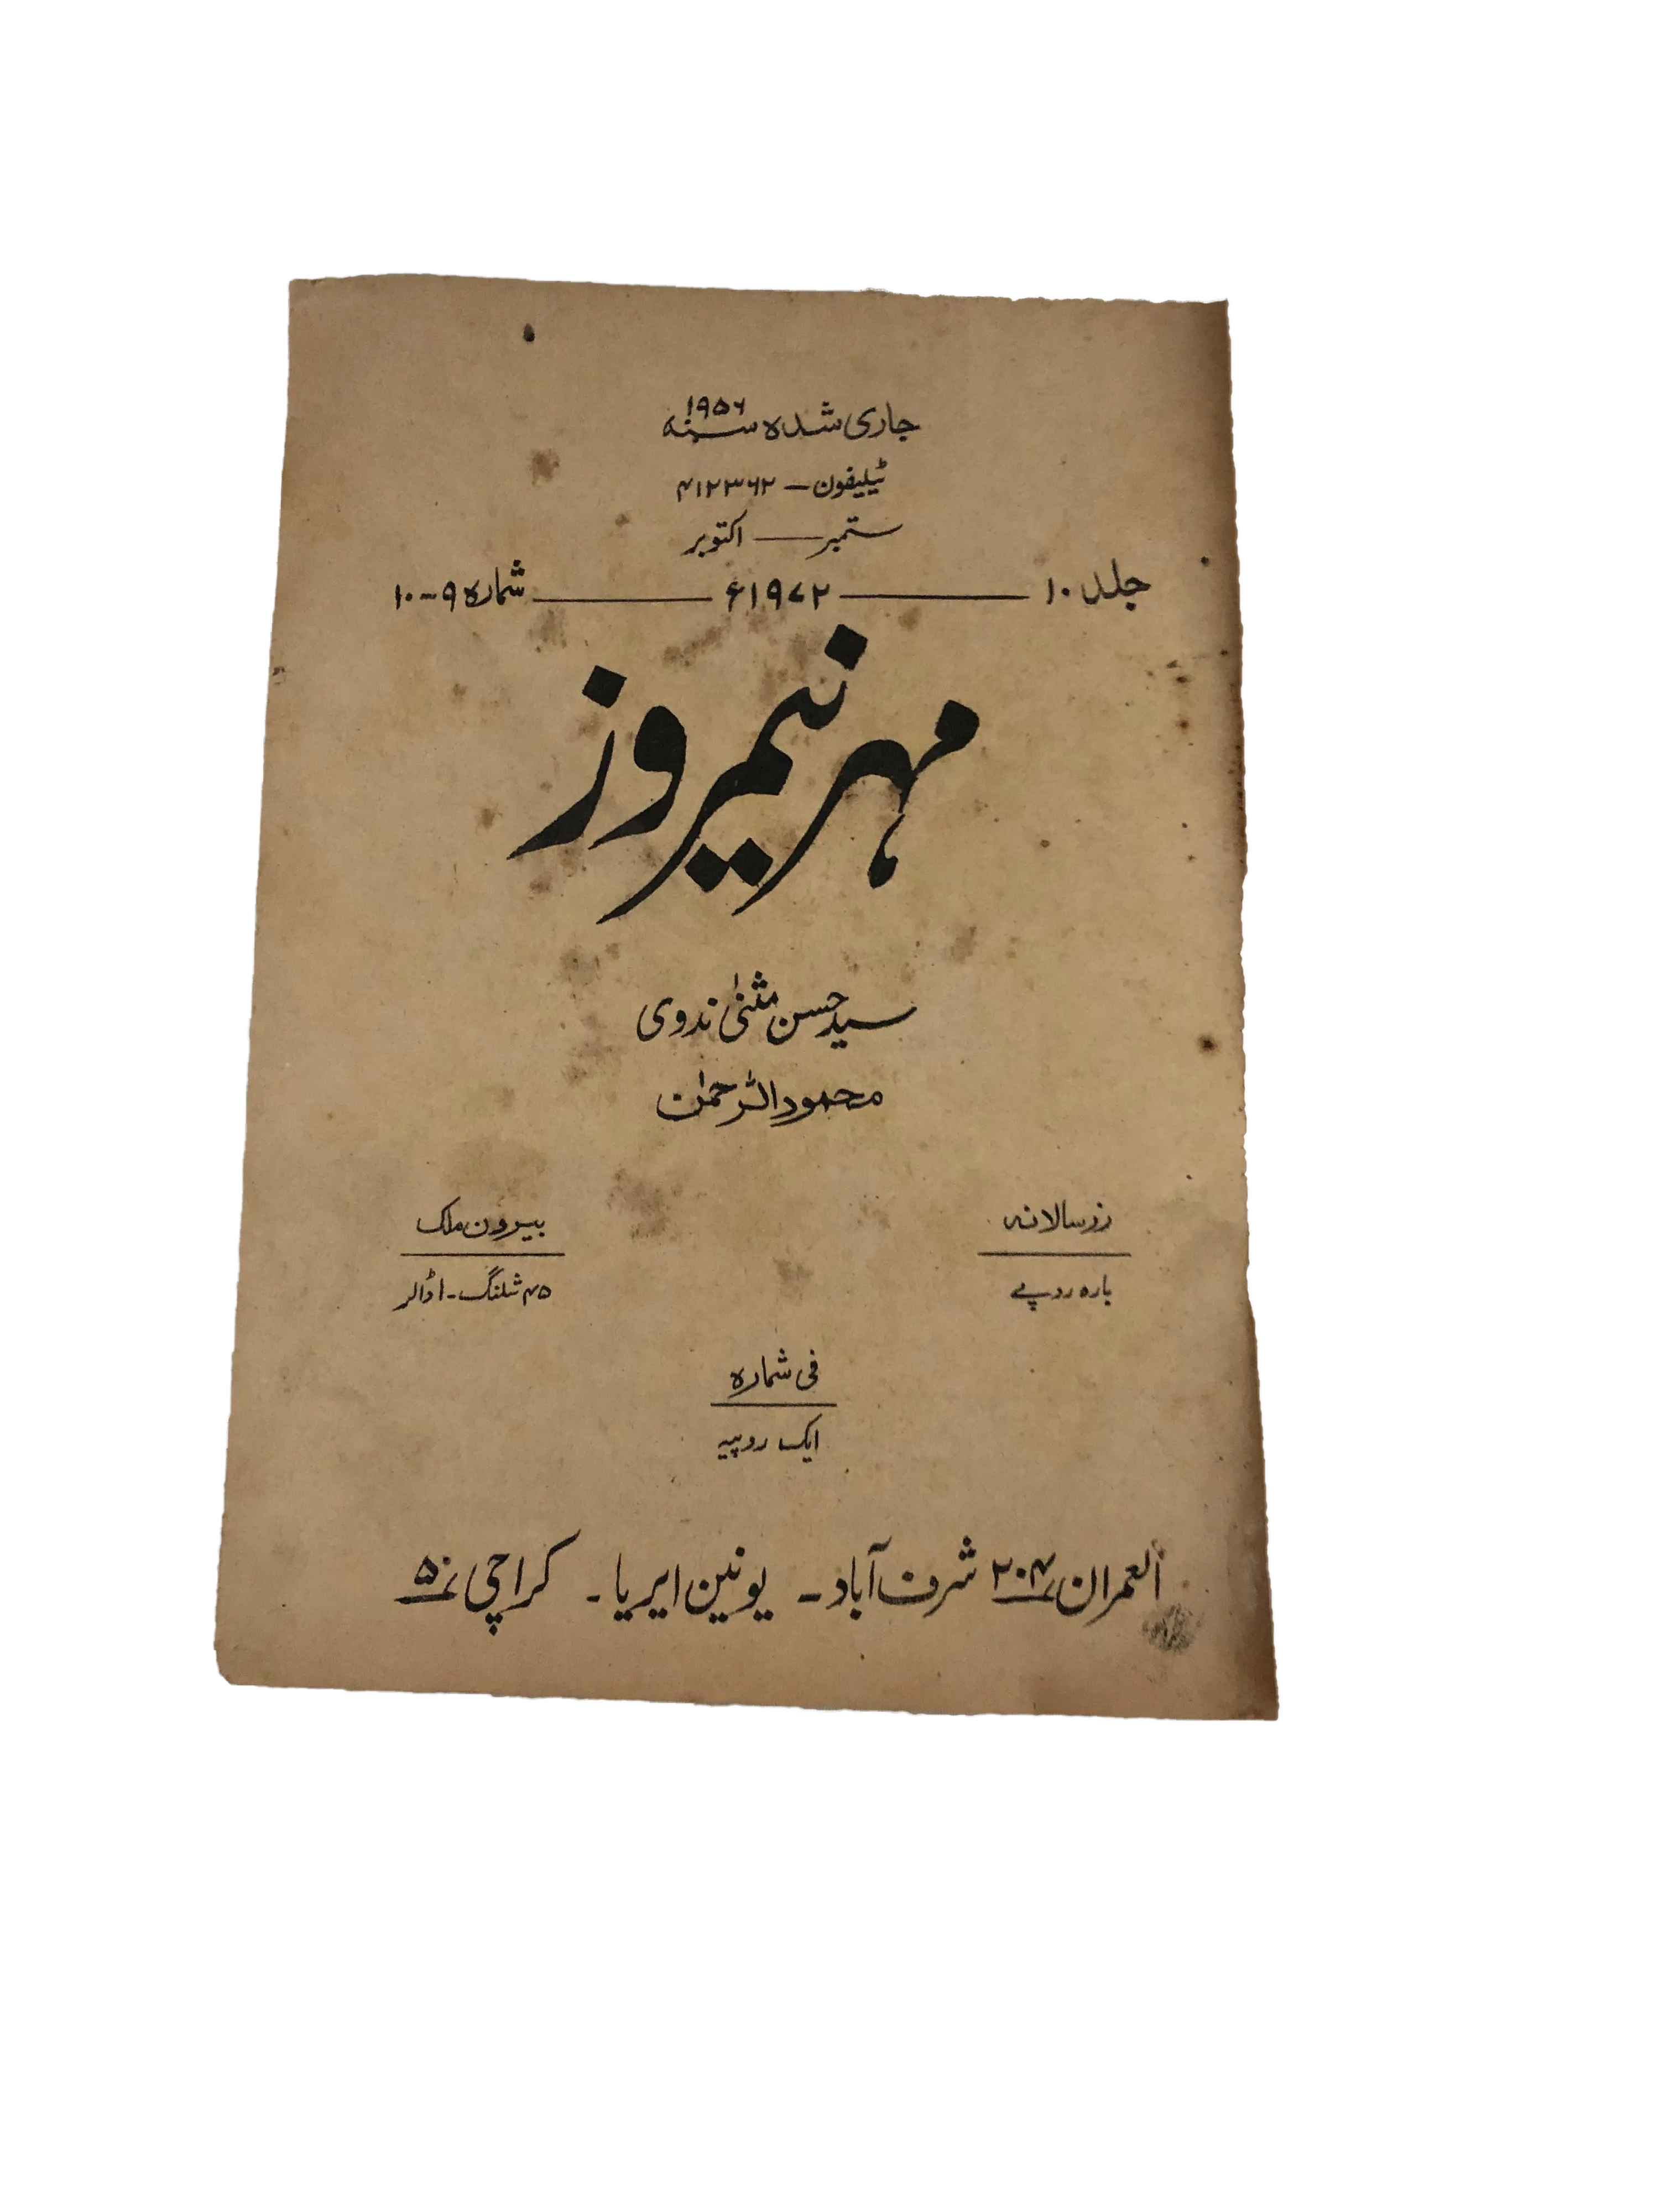 جاری شدہ سنہ ۱۹۵۶
ٹیلیفون — ۴۱۲۳۶۲
ستمبر — اکتوبر
جلد ۱۰ — ۱۹۷۲ء — شمارہ ۹-۱۰
مہر نیمروز
سید حسن مثنیٰ ندوی
محمود الرحمٰن
زر سالانہ
بارہ روپے
بیرون ملک
۴۵ شلنگ - ۱ ڈالر
فی شمارہ
ایک روپیہ
العمران ۲۰۴ شرف آباد - یونین ایریا - کراچی ۵